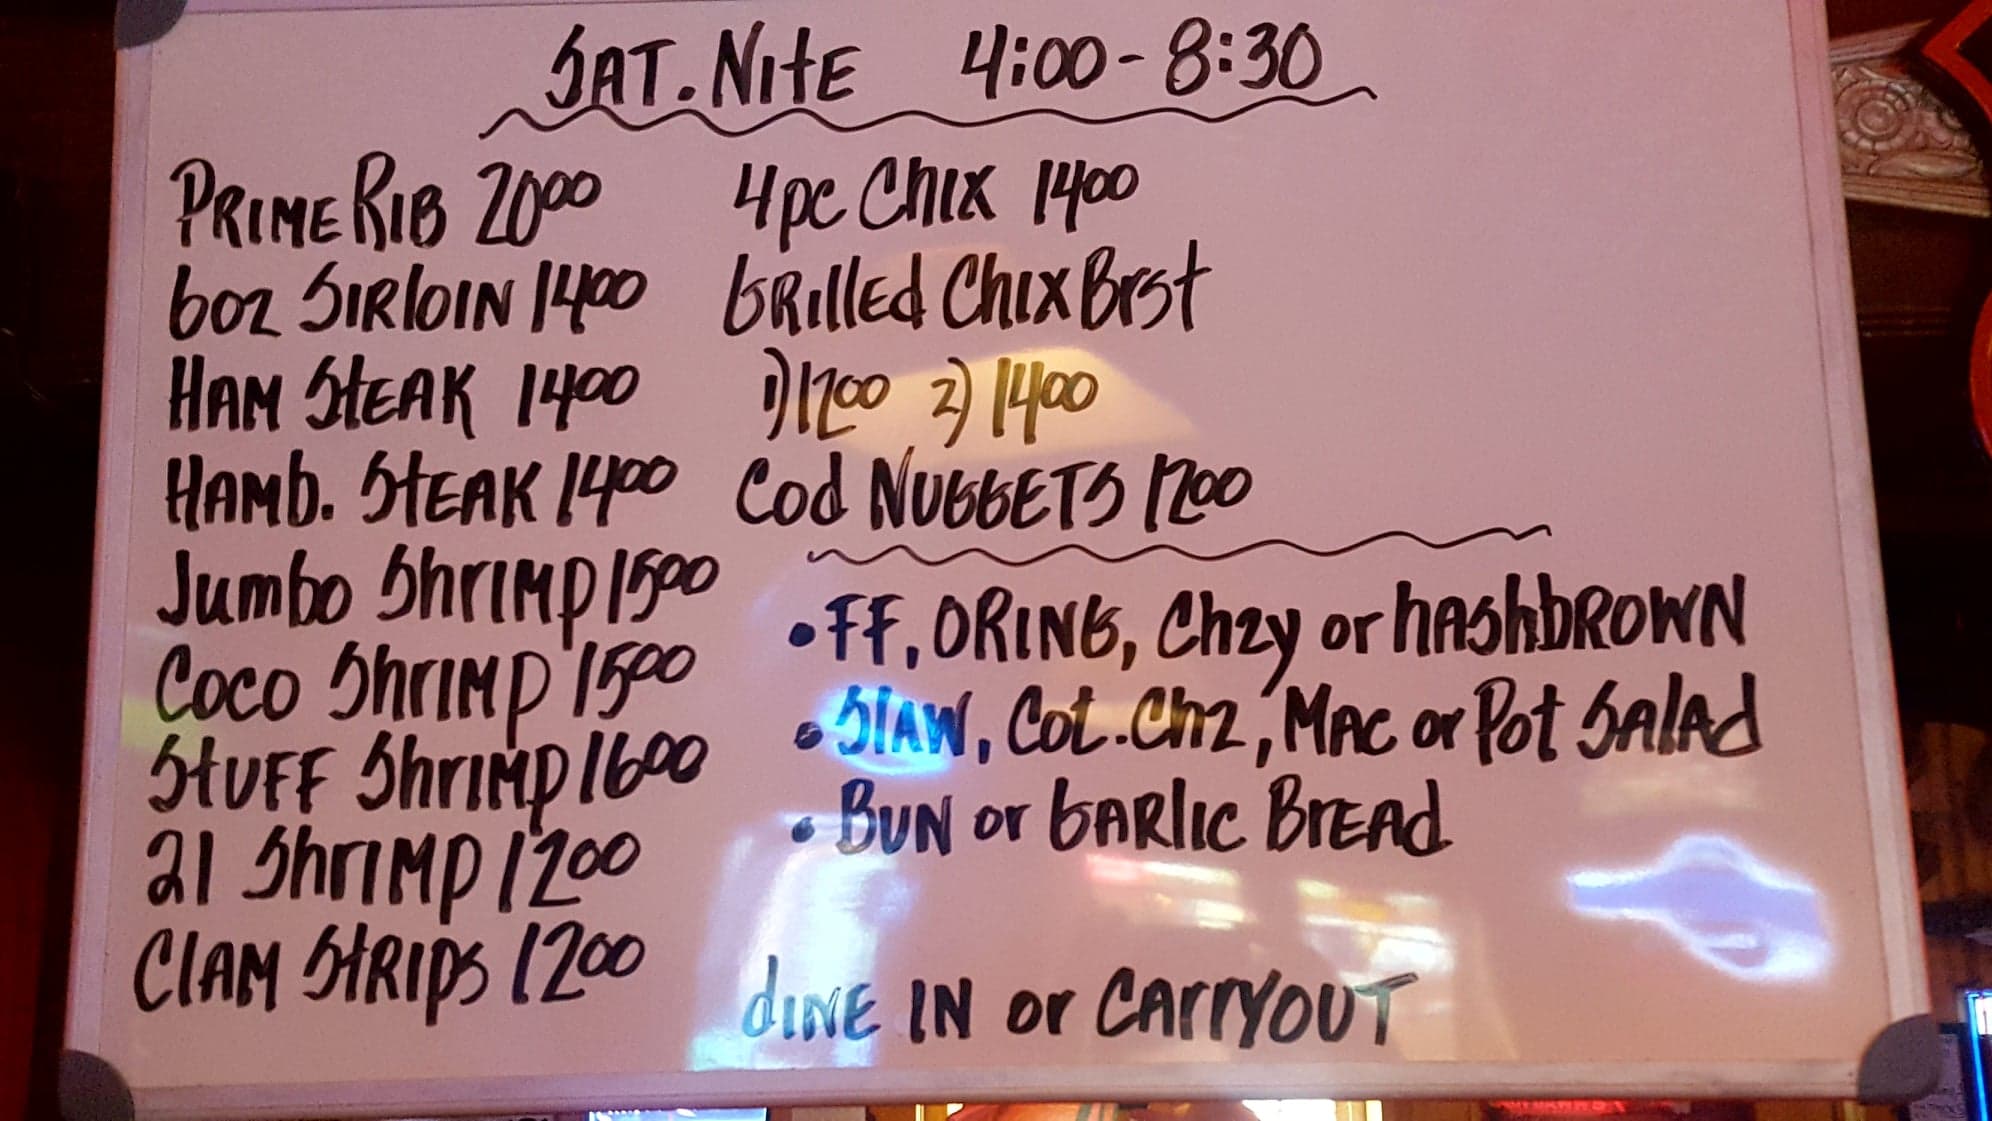 SAT. NitE 4:00-8:30
PRIME RIB 20⁰⁰
6oz SIRloIN 14⁰⁰
HAM StEAK 14⁰⁰
HAMb. StEAK 14⁰⁰
Jumbo ShrIMp 15⁰⁰
Coco ShrIMp 15⁰⁰
StUFF ShrIMp 16⁰⁰
21 ShrIMp 12⁰⁰
ClAM StRIpS 12⁰⁰
4pc ChIX 14⁰⁰
GRIllEd ChIX Brst
1) 12⁰⁰ 2) 14⁰⁰
Cod NUGGETS 12⁰⁰
• FF, ORING, Chzy or hAShbROWN
• SlAW, Cot. Chz, MAC or Pot SAlAd
• BUN or GARlIC BrEAd
dINE IN or CArryOUT